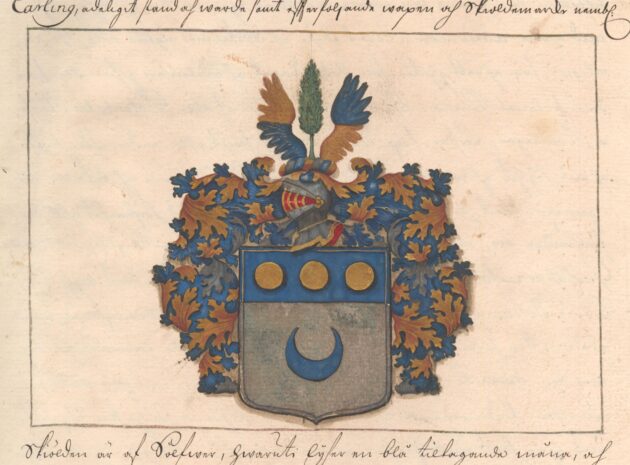 Carling, adeligit stand och warde samt efterfolgande wapen och Skiöldemärke nembl.
Skiölden är af Solfwer, hwaruti lyser en blå tiltagande måna, och